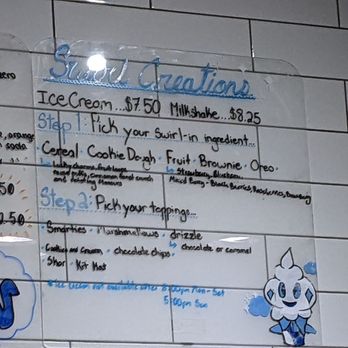 Swirl Creations
Ice Cream...$7.50 Milkshake...$8.25
Step 1: Pick your Swirl-in ingredient...
Cereal · Cookie Dough · Fruit · Brownie · Oreo
Lucky charms, fruit loops
Strawberry, Blueberry
Cinnamon toast crunch
Mixed Berry -
and rotating flavours
Step 2: Pick your toppings...
Smarties · Marshmallows · drizzle
chocolate or caramel
Cookies and Cream · chocolate chips
Skor · Kit Kat
Ice Cream not available after 8:00pm Mon-Sat
5:00pm Sun
50
2.50